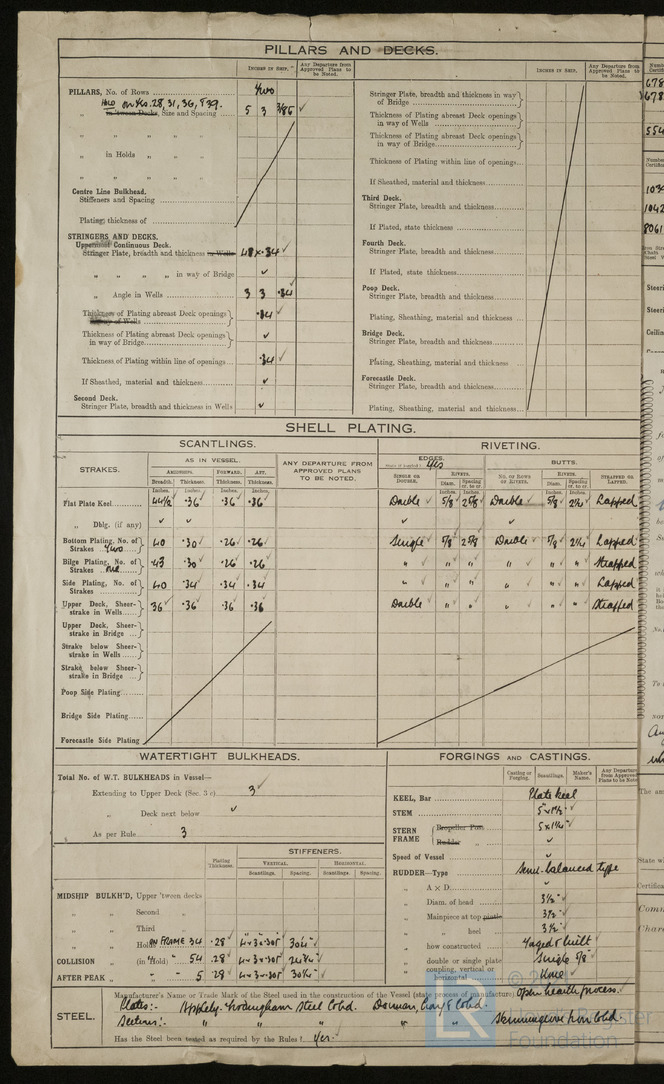 PILLARS AND DECKS.
INCHES IN SHIP.
Any Departure from Approved Plans to be Noted.
PILLARS, No. of Rows
Two
Also on Nos. 28, 31, 36, & 39.
" in 'tween Decks, Size and Spacing
5 3 3/8
" " "
" in Holds " "
" " "
Centre Line Bulkhead.
Stiffeners and Spacing
Plating, thickness of
STRINGERS AND DECKS.
Uppermost Continuous Deck.
Stringer Plate, breadth and thickness in Wells 48 × .34
" " " " in way of Bridge
" Angle in Wells 3 3 .34
Thickness of Plating abreast Deck openings in way of Wells .34
Thickness of Plating abreast Deck openings in way of Bridge
Thickness of Plating within line of openings .34
If Sheathed, material and thickness
Second Deck.
Stringer Plate, breadth and thickness in Wells
INCHES IN SHIP.
Any Departure from Approved Plans to be Noted.
Stringer Plate, breadth and thickness in way of Bridge
Thickness of Plating abreast Deck openings in way of Wells
Thickness of Plating abreast Deck openings in way of Bridge
Thickness of Plating within line of openings
If Sheathed, material and thickness
Third Deck.
Stringer Plate, breadth and thickness
If Plated, state thickness
Fourth Deck.
Stringer Plate, breadth and thickness
If Plated, state thickness
Poop Deck.
Stringer Plate, breadth and thickness
Plating, Sheathing, material and thickness
Bridge Deck.
Stringer Plate, breadth and thickness
Plating, Sheathing, material and thickness
Forecastle Deck.
Stringer Plate, breadth and thickness
Plating, Sheathing, material and thickness
SHELL PLATING.
SCANTLINGS.
RIVETING.
STRAKES.
AS IN VESSEL.
AMIDSHIPS. FORWARD. AFT.
Breadth. Thickness. Thickness. Thickness.
ANY DEPARTURE FROM APPROVED PLANS TO BE NOTED.
EDGES.
Yes
SINGLE OR DOUBLE.
RIVETS.
Diam. Spacing cr. to cr.
BUTTS.
No. OF ROWS OF RIVETS.
RIVETS.
Diam. Spacing cr. to cr.
STRAPPED OR LAPPED.
Inches. Inches. Inches. Inches. Inches. Inches. Inches. Inches.
Flat Plate Keel 44 1/2 .36 .36 .36 Double 5/8 2 5/8 Double 5/8 2 1/4 Lapped
" Dblg. (if any)
Bottom Plating, No. of Strakes Two 40 .30 .26 .26 Single 5/8 2 5/8 Double 5/8 2 1/4 Lapped
Bilge Plating, No. of Strakes One 43 .30 .26 .26 " " " " " " Strapped
Side Plating, No. of Strakes 40 .34 .34 .34 " " " " " " Lapped
Upper Deck, Sheerstrake in Wells 36 .36 .36 .36 Double " " " " " Strapped
Upper Deck, Sheerstrake in Bridge
Strake below Sheerstrake in Wells
Strake below Sheerstrake in Bridge
Poop Side Plating
Bridge Side Plating
Forecastle Side Plating
WATERTIGHT BULKHEADS.
Total No. of W.T. BULKHEADS in Vessel—
Extending to Upper Deck (Sec. 3 c) 3
" Deck next below
As per Rule 3
Plating Thickness.
STIFFENERS.
VERTICAL. HORIZONTAL.
Scantlings. Spacing. Scantlings. Spacing.
MIDSHIP BULKH'D, Upper 'tween decks
" " Second "
" " Third "
" " Hold ON FRAME 34 .28 4 × 3 × .305 30 1/4"
COLLISION " (in Hold) " 54 .28 4 × 3 × .305 24 1/4"
AFTER PEAK " " " 5 .28 4 × 3 × .305 30 1/4"
FORGINGS AND CASTINGS.
Casting or Forging. Scantlings. Maker's Name. Any Departure from Approved Plans to be Noted
KEEL, Bar Plate keel
STEM 5" × 1 1/2"
STERN FRAME Propeller Post 5 × 1 1/2"
Rudder "
Speed of Vessel
RUDDER—Type Semi-balanced type
" A × D
" Diam. of head 3 1/2"
" Mainpiece at top pintle 3 1/2"
" " heel 3 1/2"
" how constructed Forged & built
" double or single plate Single 5/8"
" coupling, vertical or horizontal
STEEL.
Manufacturer's Name or Trade Mark of the Steel used in the construction of the Vessel (state process of manufacture). Open hearth process.
Plates:- Appleby-Frodingham Steel Co Ltd. Dorman, Long & Co Ltd.
Sections:- " " " " " Skinningrove Iron Co Ltd
Has the Steel been tested as required by the Rules? Yes.
Lloyd's Register
Foundation